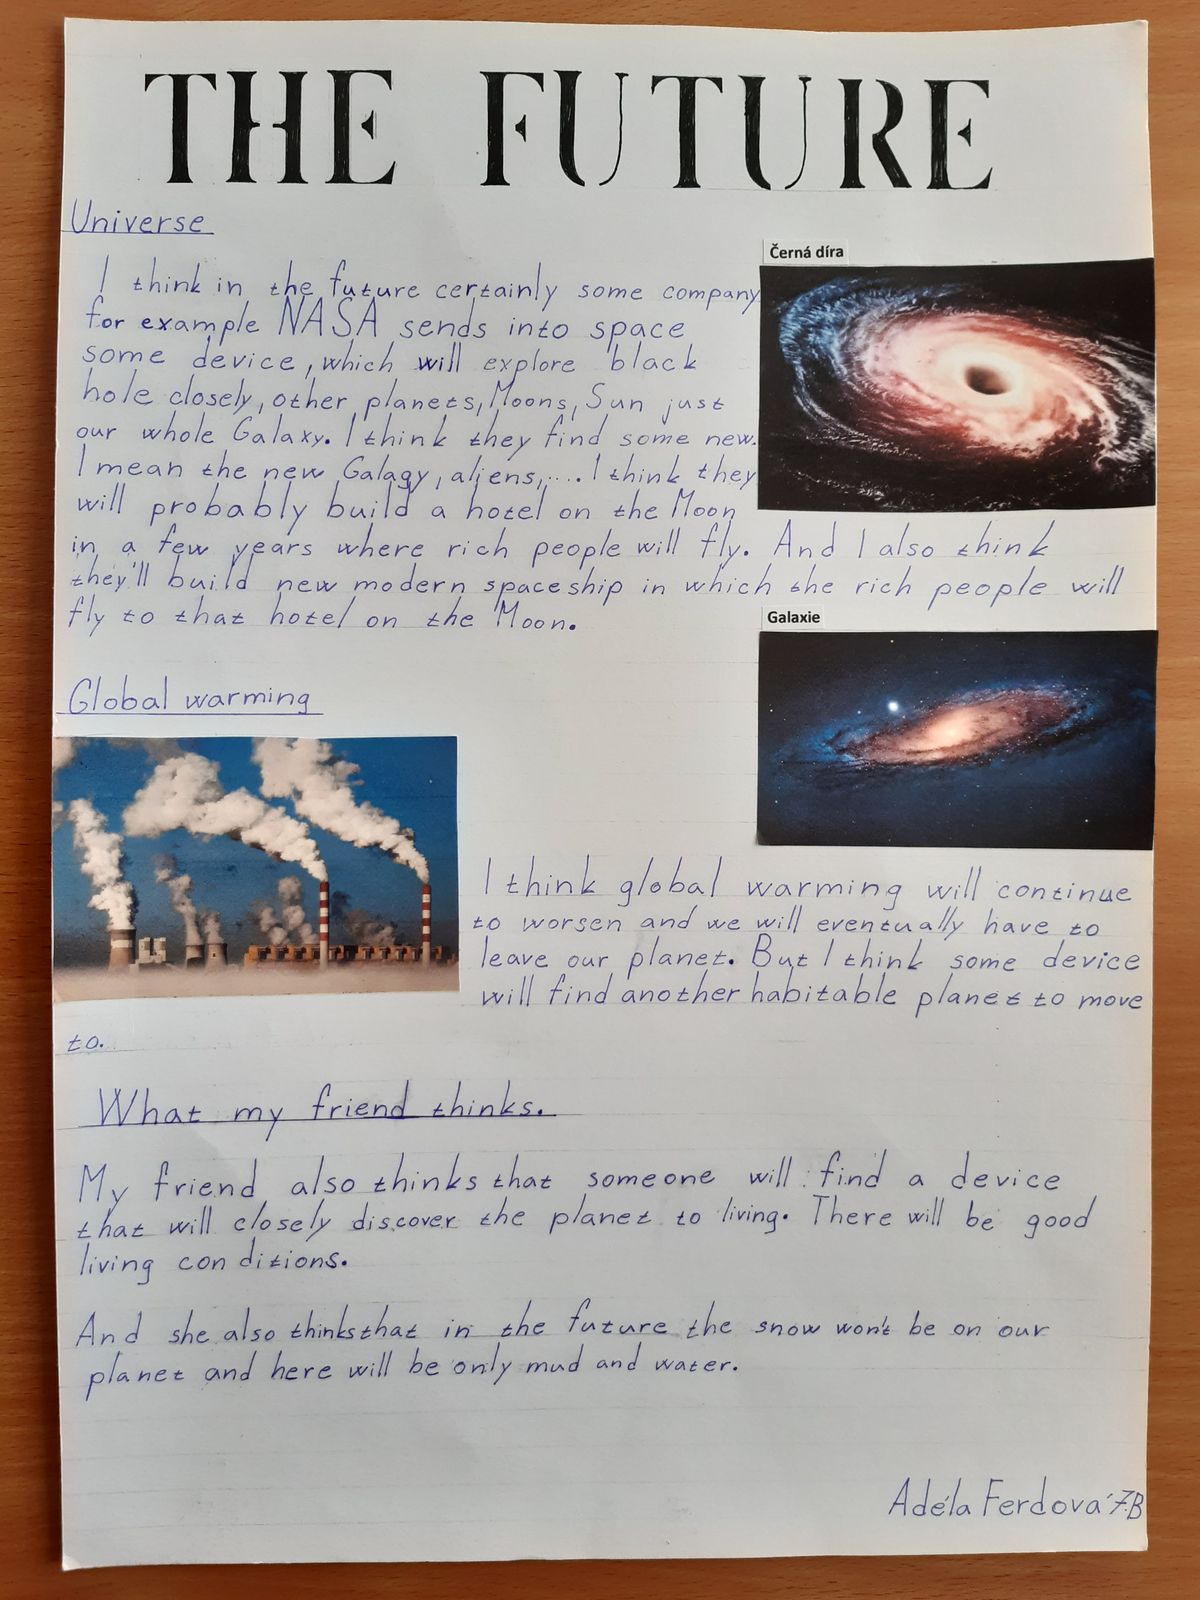 THE FUTURE
Universe
Černá díra
I think in the future certainly some company
for example NASA sends into space
some device, which will explore black
hole closely, other planets, Moons, Sun just
our whole Galaxy. I think they find some new.
I mean the new Galagy, aliens,... I think they
will probably build a hotel on the Moon
in a few years where rich people will fly. And I also think
they'll build new modern spaceship in which the rich people will
fly to that hotel on the Moon.
Galaxie
Global warming
I think global warming will continue
to worsen and we will eventually have to
leave our planet. But I think some device
will find another habitable planet to move
to.
What my friend thinks.
My friend also thinks that someone will find a device
that will closely discover the planet to living. There will be good
living conditions.
And she also thinks that in the future the snow won't be on our
planet and here will be only mud and water.
Adéla Ferdová 7.B